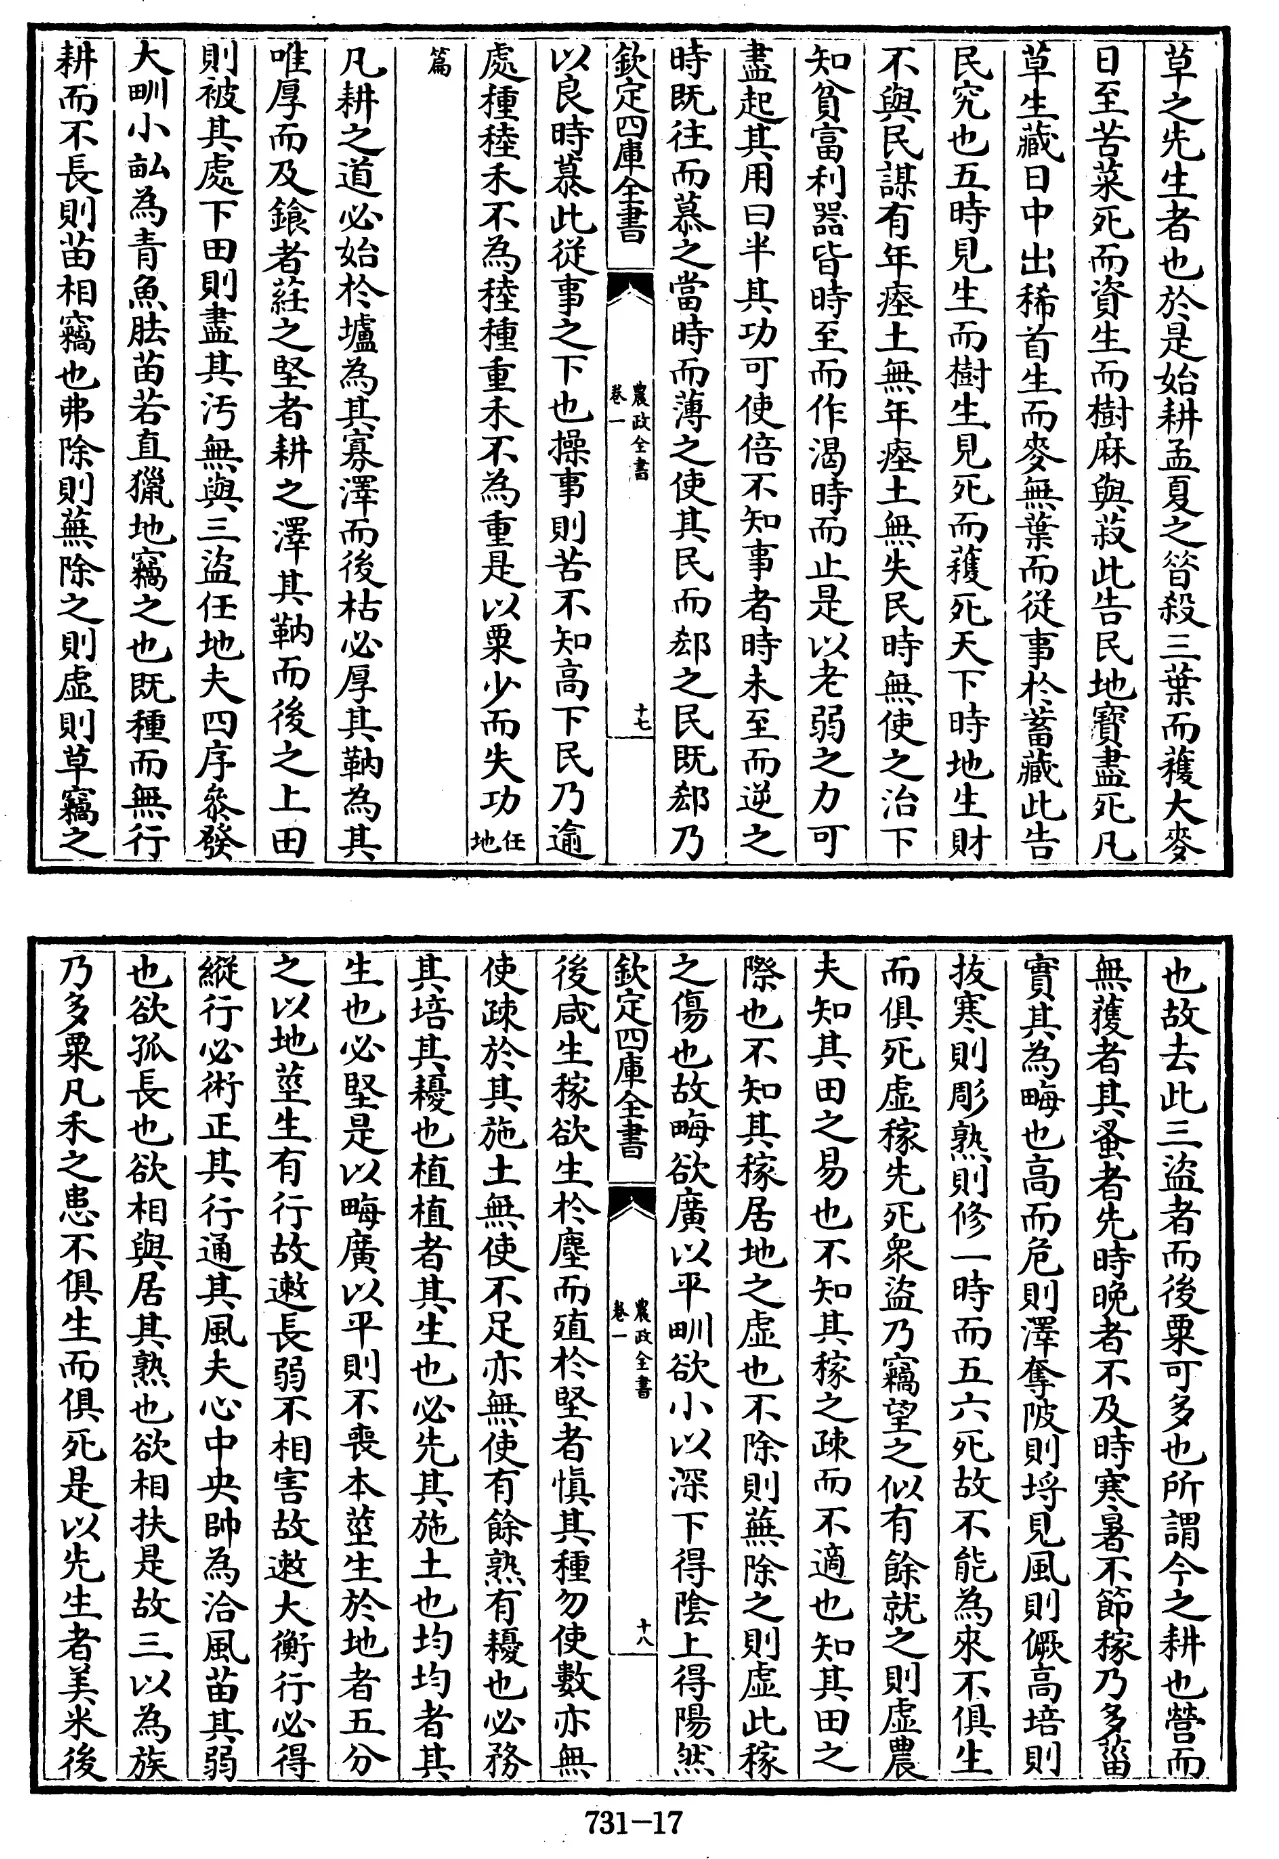 草之先生者也於是始耕孟夏之昝殺三葉而穫大麥
日至苦菜死而資生而樹麻與菽此告民地寶盡死凡
草生藏日中出稀首生而麥無葉而從事於蓄藏此告
民究也五時見生而樹生見死而穫死天下時地生財
不與民謀有年瘞土無年瘞土無失民時無使之治下
知貧富利器皆時至而作渴時而止是以老弱之力可
盡起其用曰半其功可使倍不知事者時未至而逆之
時既往而慕之當時而薄之使其民而郄之民既郄乃
欽定四庫全書
農政全書
卷一
十七
以良時慕此從事之下也操事則苦不知高下民乃逾
處種稑禾不為稑種重禾不為重是以粟少而失功任地
篇
凡耕之道必始於壚為其寡澤而後枯必厚其靹為其
唯厚而及䭘者莊之堅者耕之澤其靹而後之上田
則被其處下田則盡其汚無與三盜任地夫四序參發
大甽小畝為青魚胠苗若直獵地竊之也既種而無行
耕而不長則苗相竊也弗除則蕪除之則虛則草竊之
也故去此三盜者而後粟可多也所謂今之耕也營而
無獲者其蚤者先時晚者不及時寒暑不節稼乃多菑
實其為畮也高而危則澤奪陂則埒見風則僘高培則
拔寒則彫熟則修一時而五六死故不能為來不俱生
而俱死虛稼先死衆盜乃竊望之似有餘就之則虛農
夫知其田之易也不知其稼之疎而不適也知其田之
際也不知其稼居地之虛也不除則蕪除之則虛此稼
之傷也故畮欲廣以平甽欲小以深下得陰上得陽然
欽定四庫全書
農政全書
卷一
十八
後咸生稼欲生於塵而殖於堅者愼其種勿使數亦無
使疎於其施土無使不足亦無使有餘熟有耰也必務
其培其耰也植植者其生也必先其施土也均均者其
生也必堅是以畮廣以平則不喪本莖生於地者五分
之以地莖生有行故遫長弱不相害故遫大衡行必得
縱行必術正其行通其風夫心中央帥為泠風苗其弱
也欲孤長也欲相與居其熟也欲相扶是故三以為族
乃多粟凡禾之患不俱生而俱死是以先生者美米後
731-17